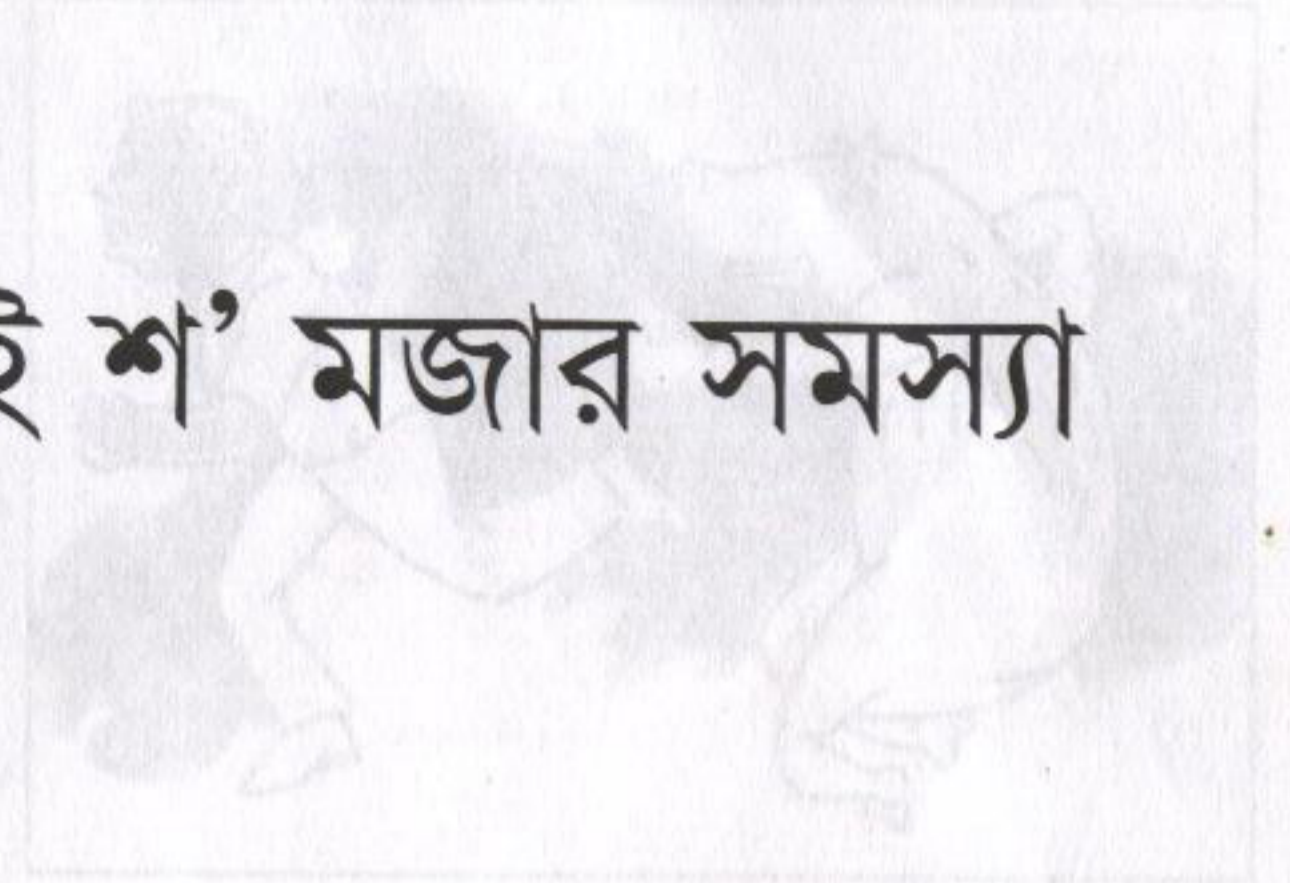 ই শ’ মজার সমস্যা